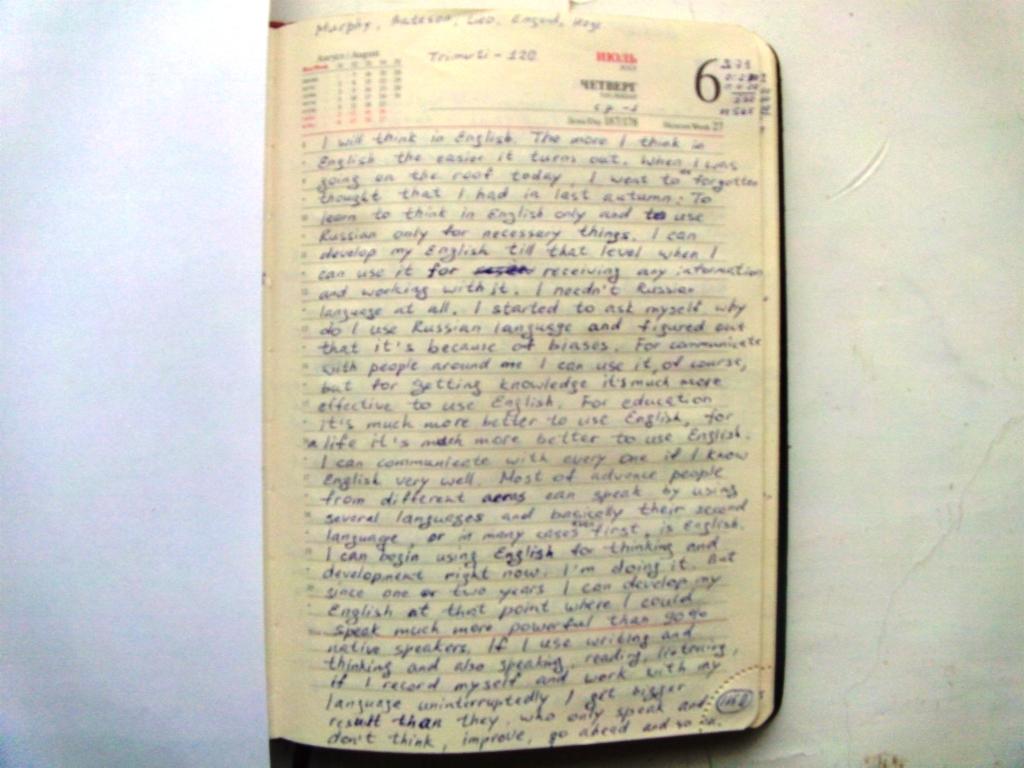 Murphy, Bateson, Leo,
Август / August
Trimurti - 120
ИЮЛЬ
ЧЕТВЕРГ
6
I will think in English. The more I think in
English the easier it turns out. When I was
going on the roof today, I went to forgotten
thought that I had in last autumn: To
learn to think in English only and to use
Russian only for necessery things. I can
develop my English till that level when I
can use it for receiving any information
and working with it. I needn't Russian
language at all. I started to ask myself why
do I use Russian language and figured out
that it's because of biases. For communicate
with people around me I can use it, of course,
but for getting knowledge it's much more
effective to use English. For education
it's much more better to use English, for
a life it's much more better to use English.
I can communicate with every one if I know
English very well. Most of advance people
from different aeras can speak by using
several languages and basically their second
language, or in many cases even first, is English.
I can begin using English for thinking and
development right now. I'm doing it. But
since one or two years I can develop my
English at that point where I could
speak much more powerful than 90%
native speakers. If I use writing and
thinking and also speaking, reading, listening,
if I record myself and work with my
language uninterruptedly I get bigger
result than they, who only speak and
don't think, improve, go ahead and so on.